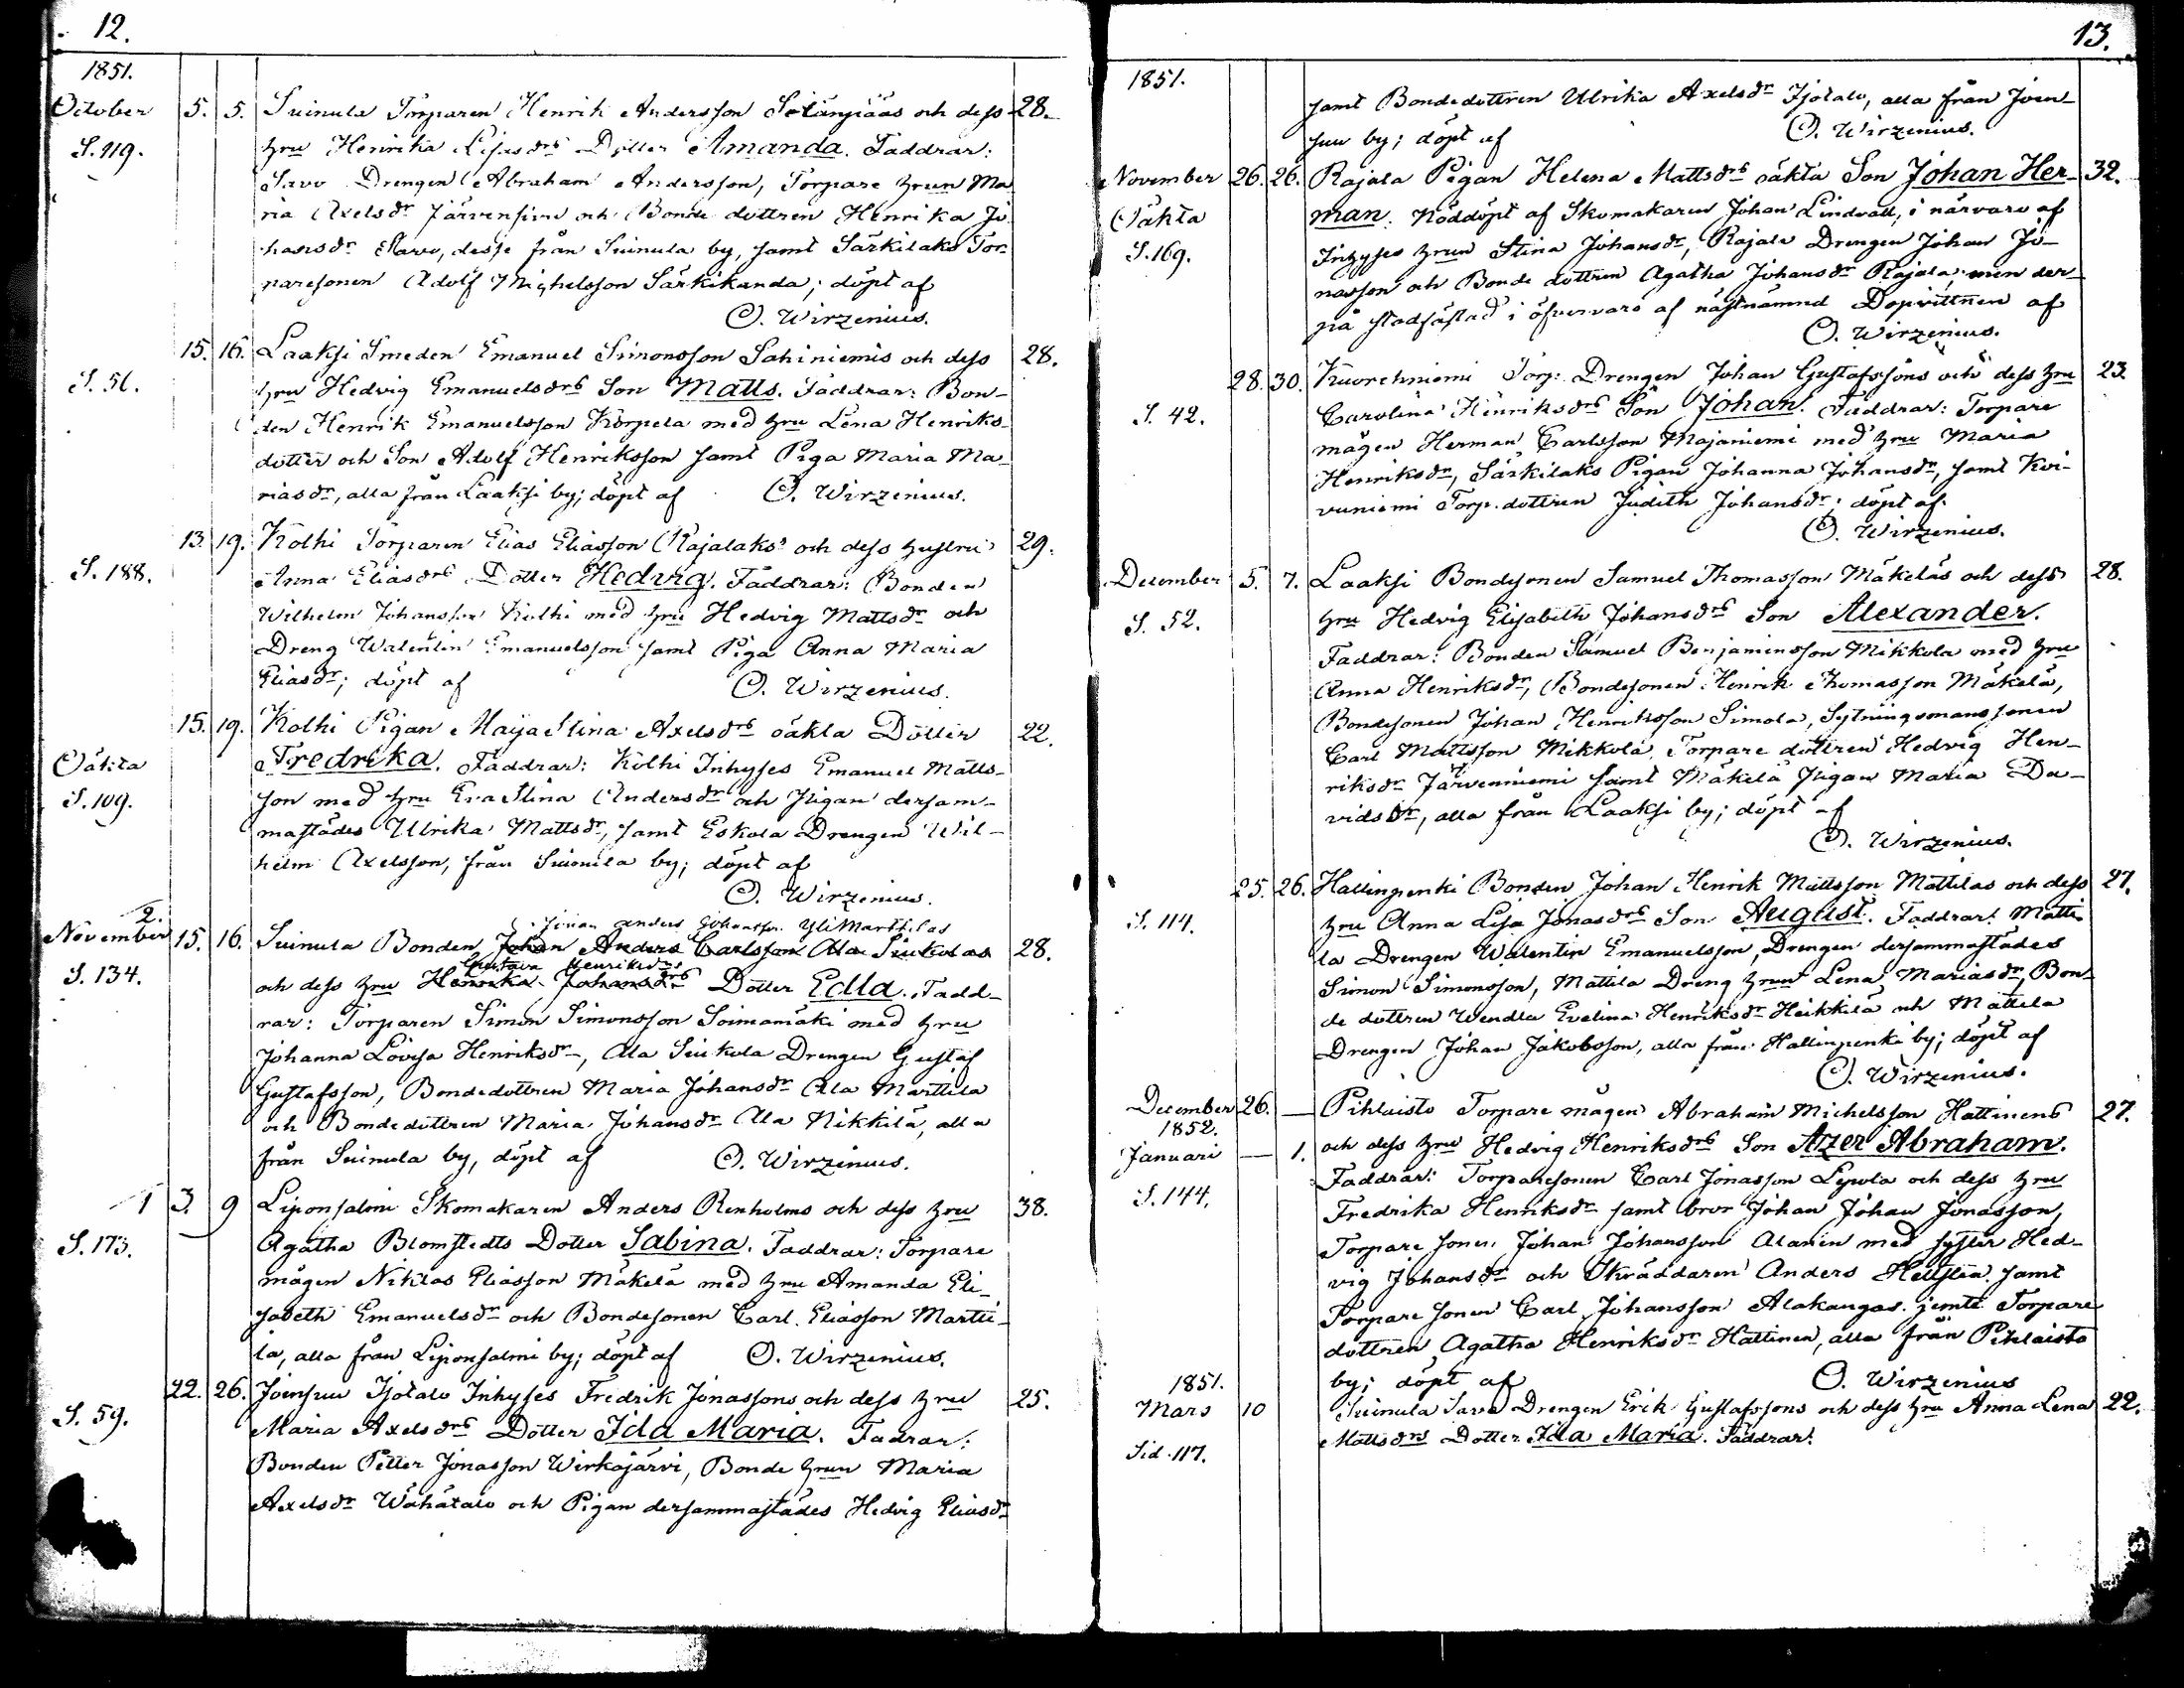 12.
1851.
October 5. 5. Suinula Torparen Henrik Andersson Sillänpääs och dess 28.
S. 119. hru Henrika Lisasdrs Dotter Amanda. Faddrar:
Savo Drengen Abraham Andersson, Torpare hrun Ma
ria Axelsdr Järvensivu och Bonde dottren Henrika Jo
hansdr Savo, desse från Suinula by, samt Särkilaks Tor-
paresonen Adolf Michelsson Särkikanda; döpt af
O. Wirzenius.
15. 16. Laaksi Smeden Emanuel Simonsson Sahiniemis och dess 28.
S. 56. hru Hedvig Emanuelsdrs Son Matts. Faddrar: Bon-
den Henrik Emanuelsson Korpela med hru Lena Henriks-
dotter och Son Adolf Henriksson samt Piga Maria Ma-
riasdr, alla från Laaksi by; döpt af O. Wirzenius.
13. 19. Kolhi Torparen Elias Eliasson Rajalaks och dess hustru 29.
S. 188. Anna Eliasdrs Dotter Hedvig. Faddrar: Bonden
Wilhelm Johansson Kolhi med hru Hedvig Mattsdr och
Dreng Walentin Emanuelsson samt Piga Anna Maria
Eliasdr; döpt af O. Wirzenius.
15. 19. Kolhi Pigan Maija Stina Axelsdrs oäkta Dotter 22.
Oäkta Fredrika. Faddrar: Kolhi Inhyses Emanuel Matts-
S. 109. son med hru Eva Stina Andersdr och Pigan dersam-
mastädes Ulrika Mattsdr, samt Eskola Drengen Wil-
helm Axelsson, från Suinula by; döpt af
O. Wirzenius.
2. Johan Anders Johansson Yli Marttilas
November 15. 16. Suinula Bonden Johan Anders Carlsson Ala Siukolas 28.
Gustava Henriksdrs
S. 134. och dess hru Henrika Johansdrs Dotter Edla. Fadd-
rar: Torparen Simon Simonsson Soimamäki med hru
Johanna Lovisa Henriksdr, Ala Siukola Drengen Gustaf
Gustafsson, Bondedottren Maria Johansdr Ala Marttila
och Bondedottren Maria Johansdr Ala Nikkilä, alla
från Suinula by, döpt af O. Wirzenius.
1 3. 9 Liponsalmi Skomakaren Anders Renholms och dess hru 38.
S. 173. Agatha Blomstedts Dotter Sabina. Faddrar: Torpare
mågen Niklas Eliasson Mäkelä med hru Amanda Eli-
sabeth Emanuelsdr och Bondesonen Carl Eliasson Martti-
la, alla från Liponsalmi by; döpt af O. Wirzenius.
22. 26. Joensuu Isotalo Inhyses Fredrik Jonassons och dess hru 25.
S. 59. Maria Axelsdrs Dotter Ida Maria. Fadrar:
Bonden Petter Jonasson Wirkajärvi, Bonde hrun Maria
Axelsdr Wähätalo och Pigan dersammastädes Hedvig Eliasdr
13.
1851.
samt Bondedottren Ulrika Axelsdr Isotalo, alla från Joen-
suu by; döpt af O. Wirzenius.
November 26. 26. Rajala Pigan Helena Mattsdrs oäkta Son Johan Her- 32.
Oäkta man. Nöddöpt af Skomakaren Johan Lindvall, i närvaro af
S. 169. Inhyses hrun Stina Johansdr, Rajala Drengen Johan Jo-
nasson och Bonde dottren Agatha Johansdr Rajala, men der-
på stadfästad i öfvervaro af nästnämnd Dopvittnen af
O. Wirzenius.
28. 30. Kuorehniemi Torp: Drengen Johan Gustafssons och dess hru 23.
S. 42. Carolina Henriksdrs Son Johan. Faddrar: Torpare
mågen Herman Carlsson Majaniemi med hru Maria
Henriksdr, Särkilaks Pigan Johanna Johansdr, samt Koi-
vuniemi Torp. dottren Judith Johansdr; döpt af
O. Wirzenius.
December 5. 7. Laaksi Bondesonen Samuel Thomasson Mäkeläs och dess 28.
S. 52. hru Hedvig Elisabeth Johansdrs Son Alexander.
Faddrar: Bonden Samuel Benjaminsson Mikkola med hru
Anna Henriksdr, Bondesonen Henrik Thomasson Mäkelä,
Bondesonen Johan Henriksson Simola, Sytningsmanssonen
Carl Mattsson Mikkola, Torpare dottren Hedvig Hen-
riksdr Järvenniemi samt Mäkelä Pigan Maria Da-
vidsdr, alla från Laaksi by; döpt af
O. Wirzenius.
25. 26. Hallinpenki Bonden Johan Henrik Mattsson Mattilas och dess 27.
S. 114. hru Anna Lisa Jonasdrs Son August. Faddrar: Matti-
la Drengen Walentin Emanuelsson, Drengen dersammastädes
Simon Simonsson, Mattila Dreng hrun Lena Mariasdr, Bon-
de dottren Wendla Evelina Henriksdr Heikkilä och Mattila
Drengen Johan Jakobsson, alla från Hallinpenki by; döpt af
O. Wirzenius.
December 26. — Pihlaisto Torpare mågen Abraham Michelsson Hattinens 27.
1852.
Januari — 1. och dess hru Hedvig Henriksdrs Son Azer Abraham.
S. 144. Faddrar: Torparesonen Carl Jonasson Lepola och dess hru
Fredrika Henriksdr samt bror Johan Johan Jonasson,
Torpare sonen Johan Johansson Alanen med syster Hed-
vig Johansdr och Skräddaren Anders Hellsten samt
Torpare sonen Carl Johansson Alakangas jemte Torpare
dottren Agatha Henriksdr Hattinen, alla från Pihlaisto
by; döpt af O. Wirzenius
1851.
Mars 10 Suinula Savo Drengen Erik Gustafssons och dess hru Anna Lena 22.
Sid. 117. Mattsdrs Dotter Ida Maria. Faddrar: